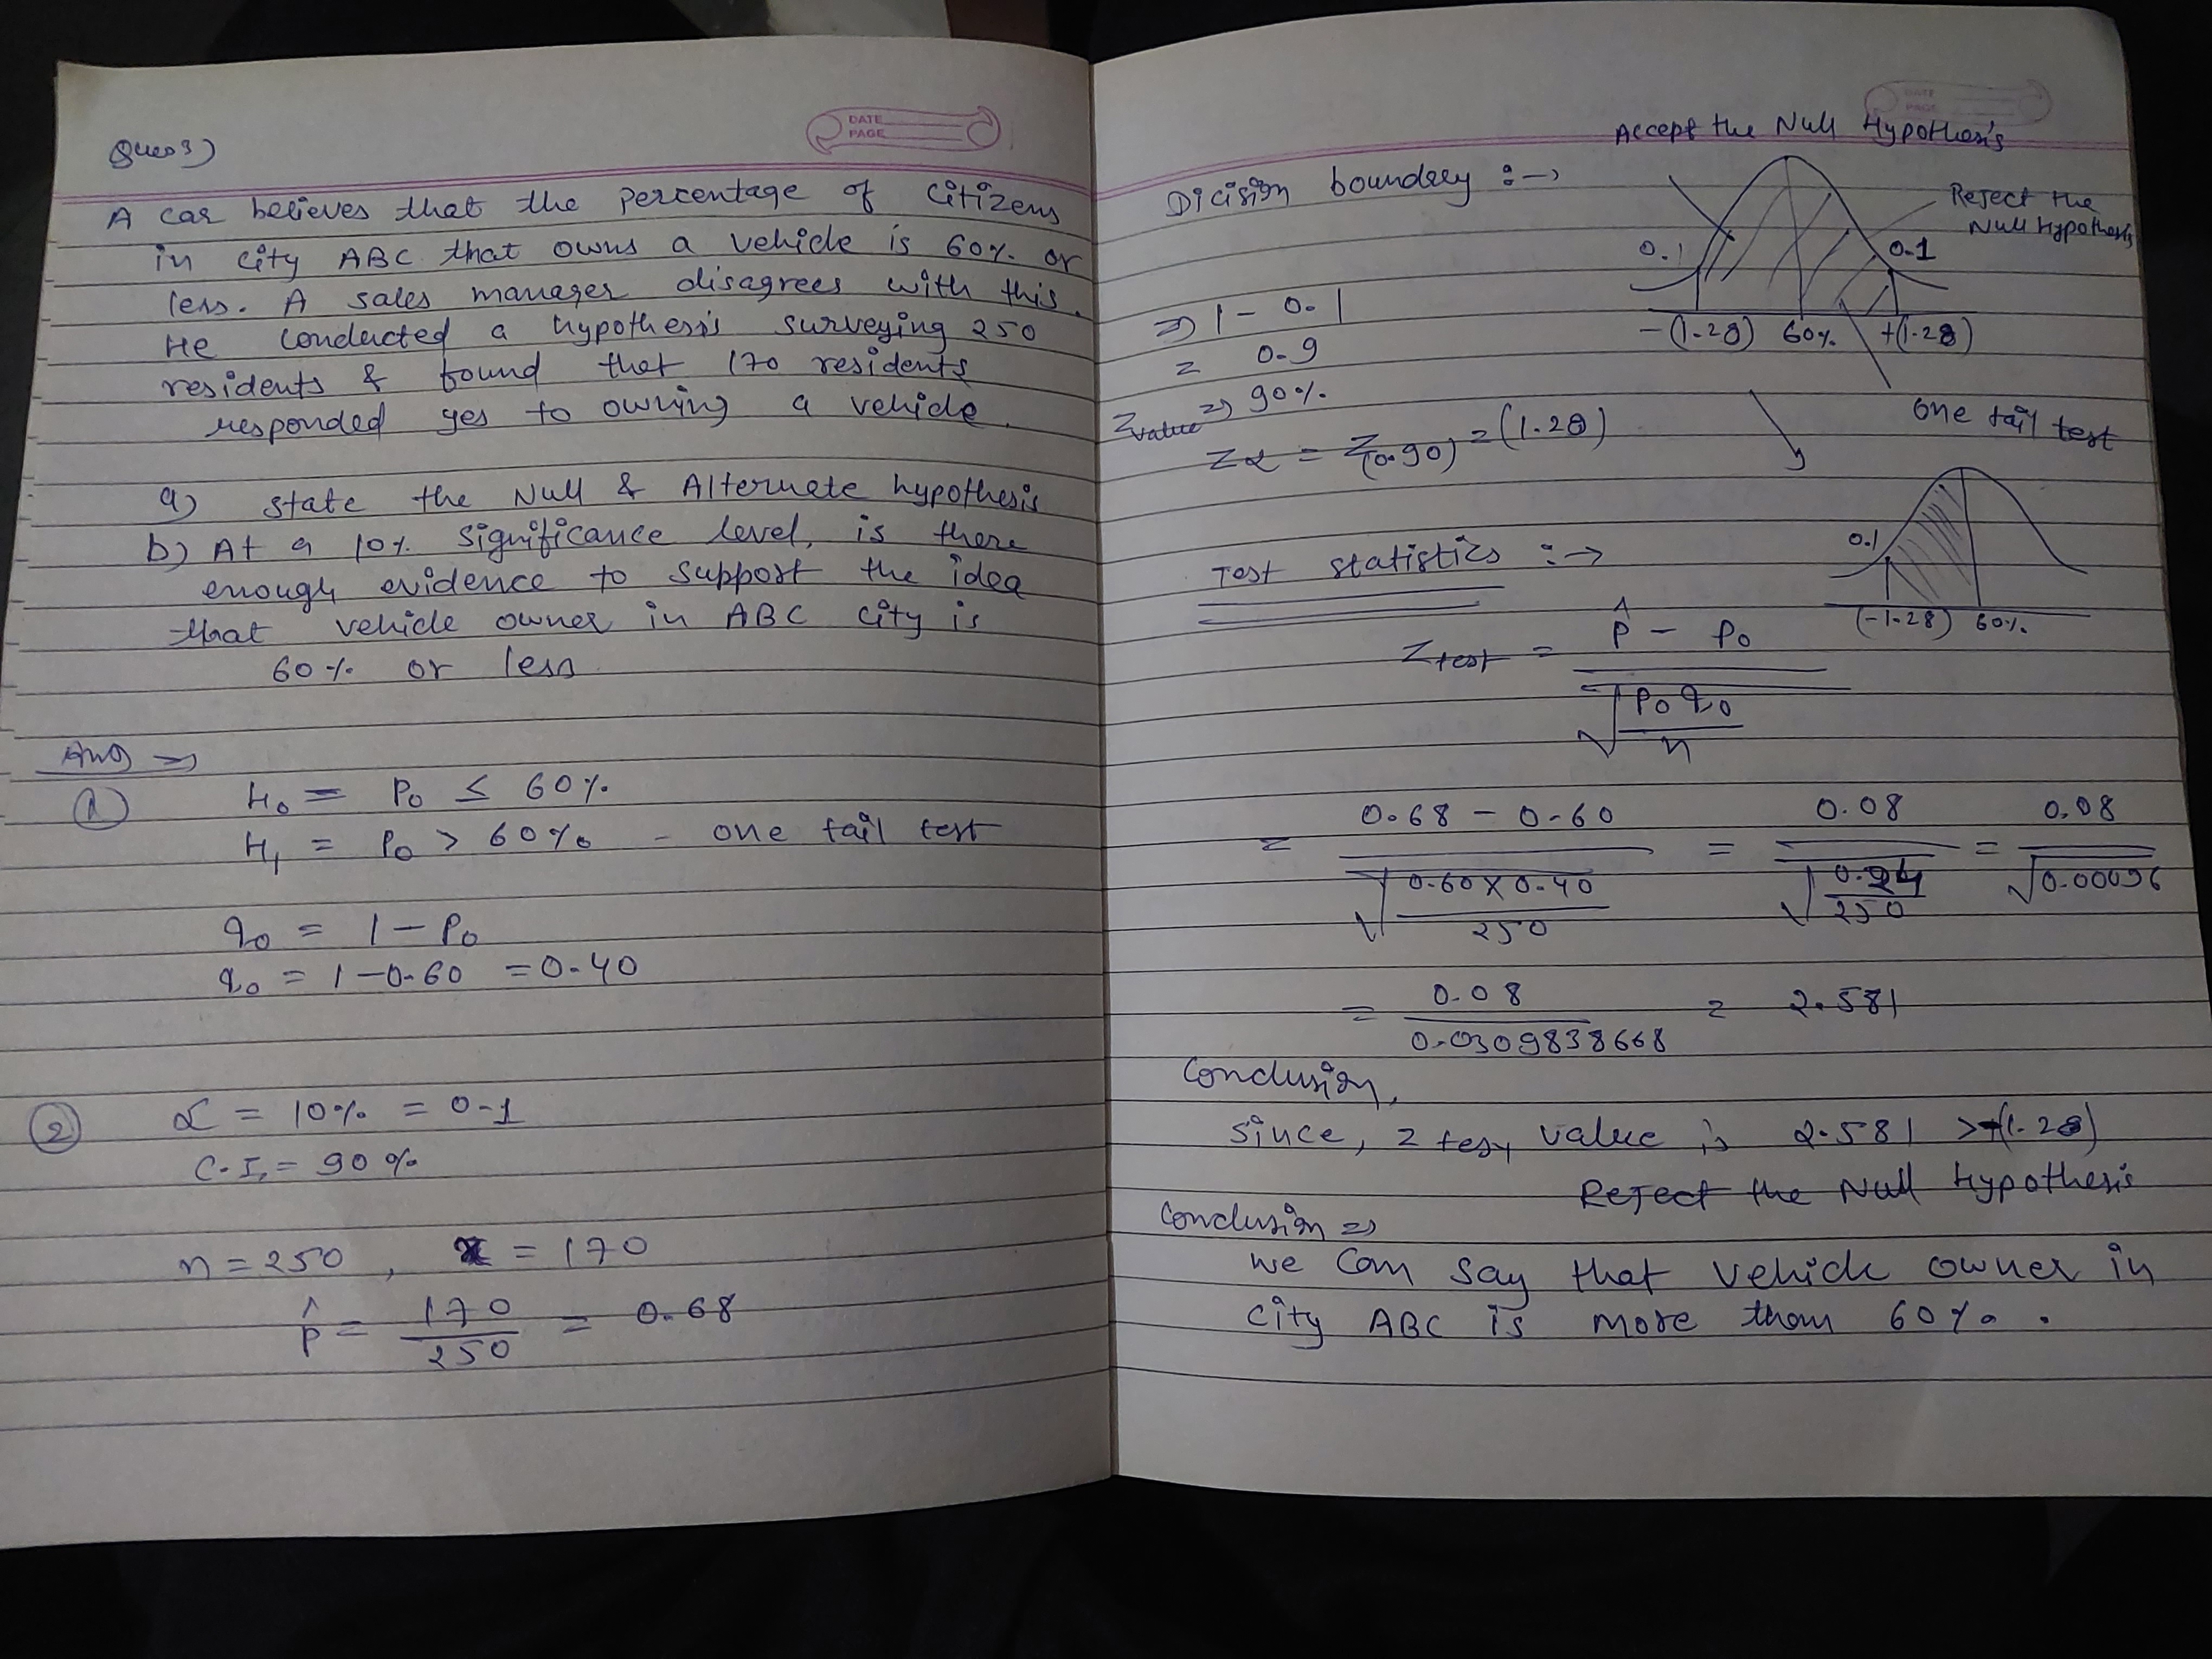 Ques3)
DATE
PAGE
A car believes that the percentage of citizens
in city ABC that owns a vehicle is 60% or
less. A sales manager disagrees with this.
He conducted a hypothesis surveying 250
residents & found that 170 residents
responded yes to owning a vehicle.
a) state the Null & Alternate hypothesis
b) At a 10% significance level, is there
enough evidence to support the idea
that vehicle owner in ABC city is
60% or less.
Ans =>
① H₀ = P₀ ≤ 60%
H₁ = P₀ > 60% - one tail test
q₀ = 1 - P₀
q₀ = 1 - 0.60 = 0.40
② α = 10% = 0.1
C.I. = 90%
n = 250, x = 170
p̂ = 170/250 = 0.68
Accept the Null Hypothesis
DATE
PAGE
Dicision boundary :→
Reject the
Null hypothesis
0.1
0.1
=> 1 - 0.1
-(1.28) 60% +(1.28)
= 0.9
Zvalue => 90%
one tail test
Zα = Z(0.90) = (1.28)
0.1
(-1.28) 60%
Test statistics :→
Ztest = p̂ - P₀ / √(P₀q₀/n)
= 0.68 - 0.60 / √(0.60×0.40/250) = 0.08 / √(0.24/250) = 0.08 / √0.00096
= 0.08 / 0.0309838668 = 2.581
Conclusion,
Since, z test value is 2.581 > (1.28)
Reject the Null hypothesis
Conclusion =>
we can say that vehicle owner in
city ABC is more than 60%.